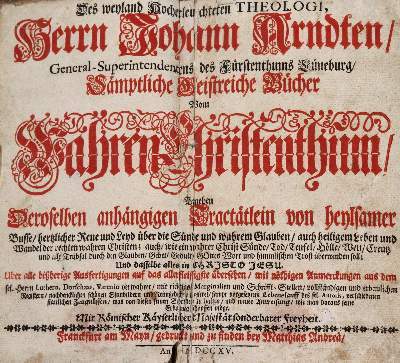 Des weyland Hocherleuchteten THEOLOGI,
Herrn Johann Arndten/
General-Superintendentens des Fürstenthums Lüneburg/
Sämptliche Geistreiche Bücher
Vom
Wahren Christenthum/
Neben
Deroselben anhängigen Tractätlein von heylsamer
Busse/ hertzlicher Reue und Leyd über die Sünde und wahrem Glauben/ auch heiligem Leben und
Wandel der rechten wahren Christen: auch/ wie ein wahrer Christ Sünde/ Tod/ Teufel/ Hölle/ Welt/ Creutz
und alle Trübsal durch den Glauben/ Gebät/ Gedult/ Gottes Wort und himmlischen Trost überwinden soll;
Und dasselbe alles in CHRISTO JESU.
Uber alle bißherige Ausfertigungen auf das allerfleissigste übersehen/ mit nöthigen Anmerckungen aus dem
sel. Herrn Luthero, Dorscheo, Varenio verwahret/ mit richtigen Marginalien und Schrifft-Stellen/ vollständigen und
Registern/
Mit Römischer Käyserlicher Majestät sonderbarer Freyheit.
Franckfurt am Mayn/ gedruckt und zu finden bey Matthias Andreä/
An MDCCXV.